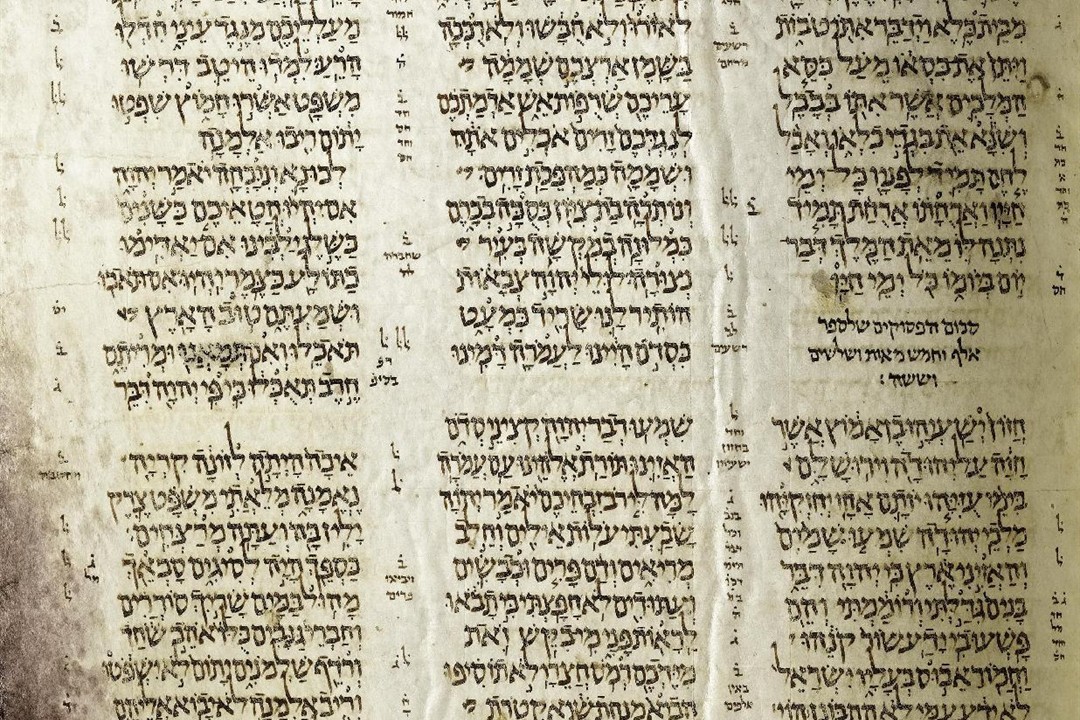 מבית כלא וידבר אתו טבות
ויתן את כסאו מעל כסא
המלכים אשר אתו בבבל
ושנא את בגדי כלאו ואכל
לחם תמיד לפניו כל ימי
חייו וארחתו ארחת תמיד
נתנה לו מאת המלך דבר
יום ביומו כל ימי חיו
סכום הפסוקים שלספר
אלף וחמש מאות ושלשים
וששה :
חזון ישעיהו בן אמוץ אשר
חזה על יהודה וירושלם
בימי עזיהו יותם אחז יחזקיהו
מלכי יהודה שמעו שמים
והאזיני ארץ כי יהוה דבר
בנים גדלתי ורוממתי והם
פשעו בי ידע שור קנהו
וחמור אבוס בעליו ישראל
לא ידע עמי לא התבונן הוי
לא זרו ולא חבשו ולא רככה
בשמן ארצכם שממה
עריכם שרפות אש אדמתכם
לנגדכם זרים אכלים אתה
ושממה כמהפכת זרים
ונותרה בת ציון כסכה בכרם
כמלונה במקשה כעיר
נצורה לולי יהוה צבאות
הותיר לנו שריד כמעט
כסדם היינו לעמרה דמינו
שמעו דבר יהוה קציני סדם
האזינו תורת אלהינו עם עמרה
למה לי רב זבחיכם יאמר יהוה
שבעתי עלות אילים וחלב
מריאים ודם פרים וכבשים
ועתודים לא חפצתי כי תבאו
לראות פני מי בקש זאת
מידכם רמס חצרי לא תוסיפו
הביא מנחת שוא קטרת
מעלליכם מנגד עיני חדלו
הרע למדו היטב דרשו
משפט אשרו חמוץ שפטו
יתום ריבו אלמנה
לכו נא ונוכחה יאמר יהוה
אם יהיו חטאיכם כשנים
כשלג ילבינו אם יאדימו
כתולע כצמר יהיו אם תאבו
ושמעתם טוב הארץ
תאכלו ואם תמאנו ומריתם
חרב תאכלו כי פי יהוה דבר
איכה היתה לזונה קריה
נאמנה מלאתי משפט צדק
ילין בה ועתה מרצחים
כספך היה לסיגים סבאך
מהול במים שריך סוררים
וחברי גנבים כלו אהב שחד
ורדף שלמנים יתום לא ישפטו
וריב אלמנה לא יבוא אליהם